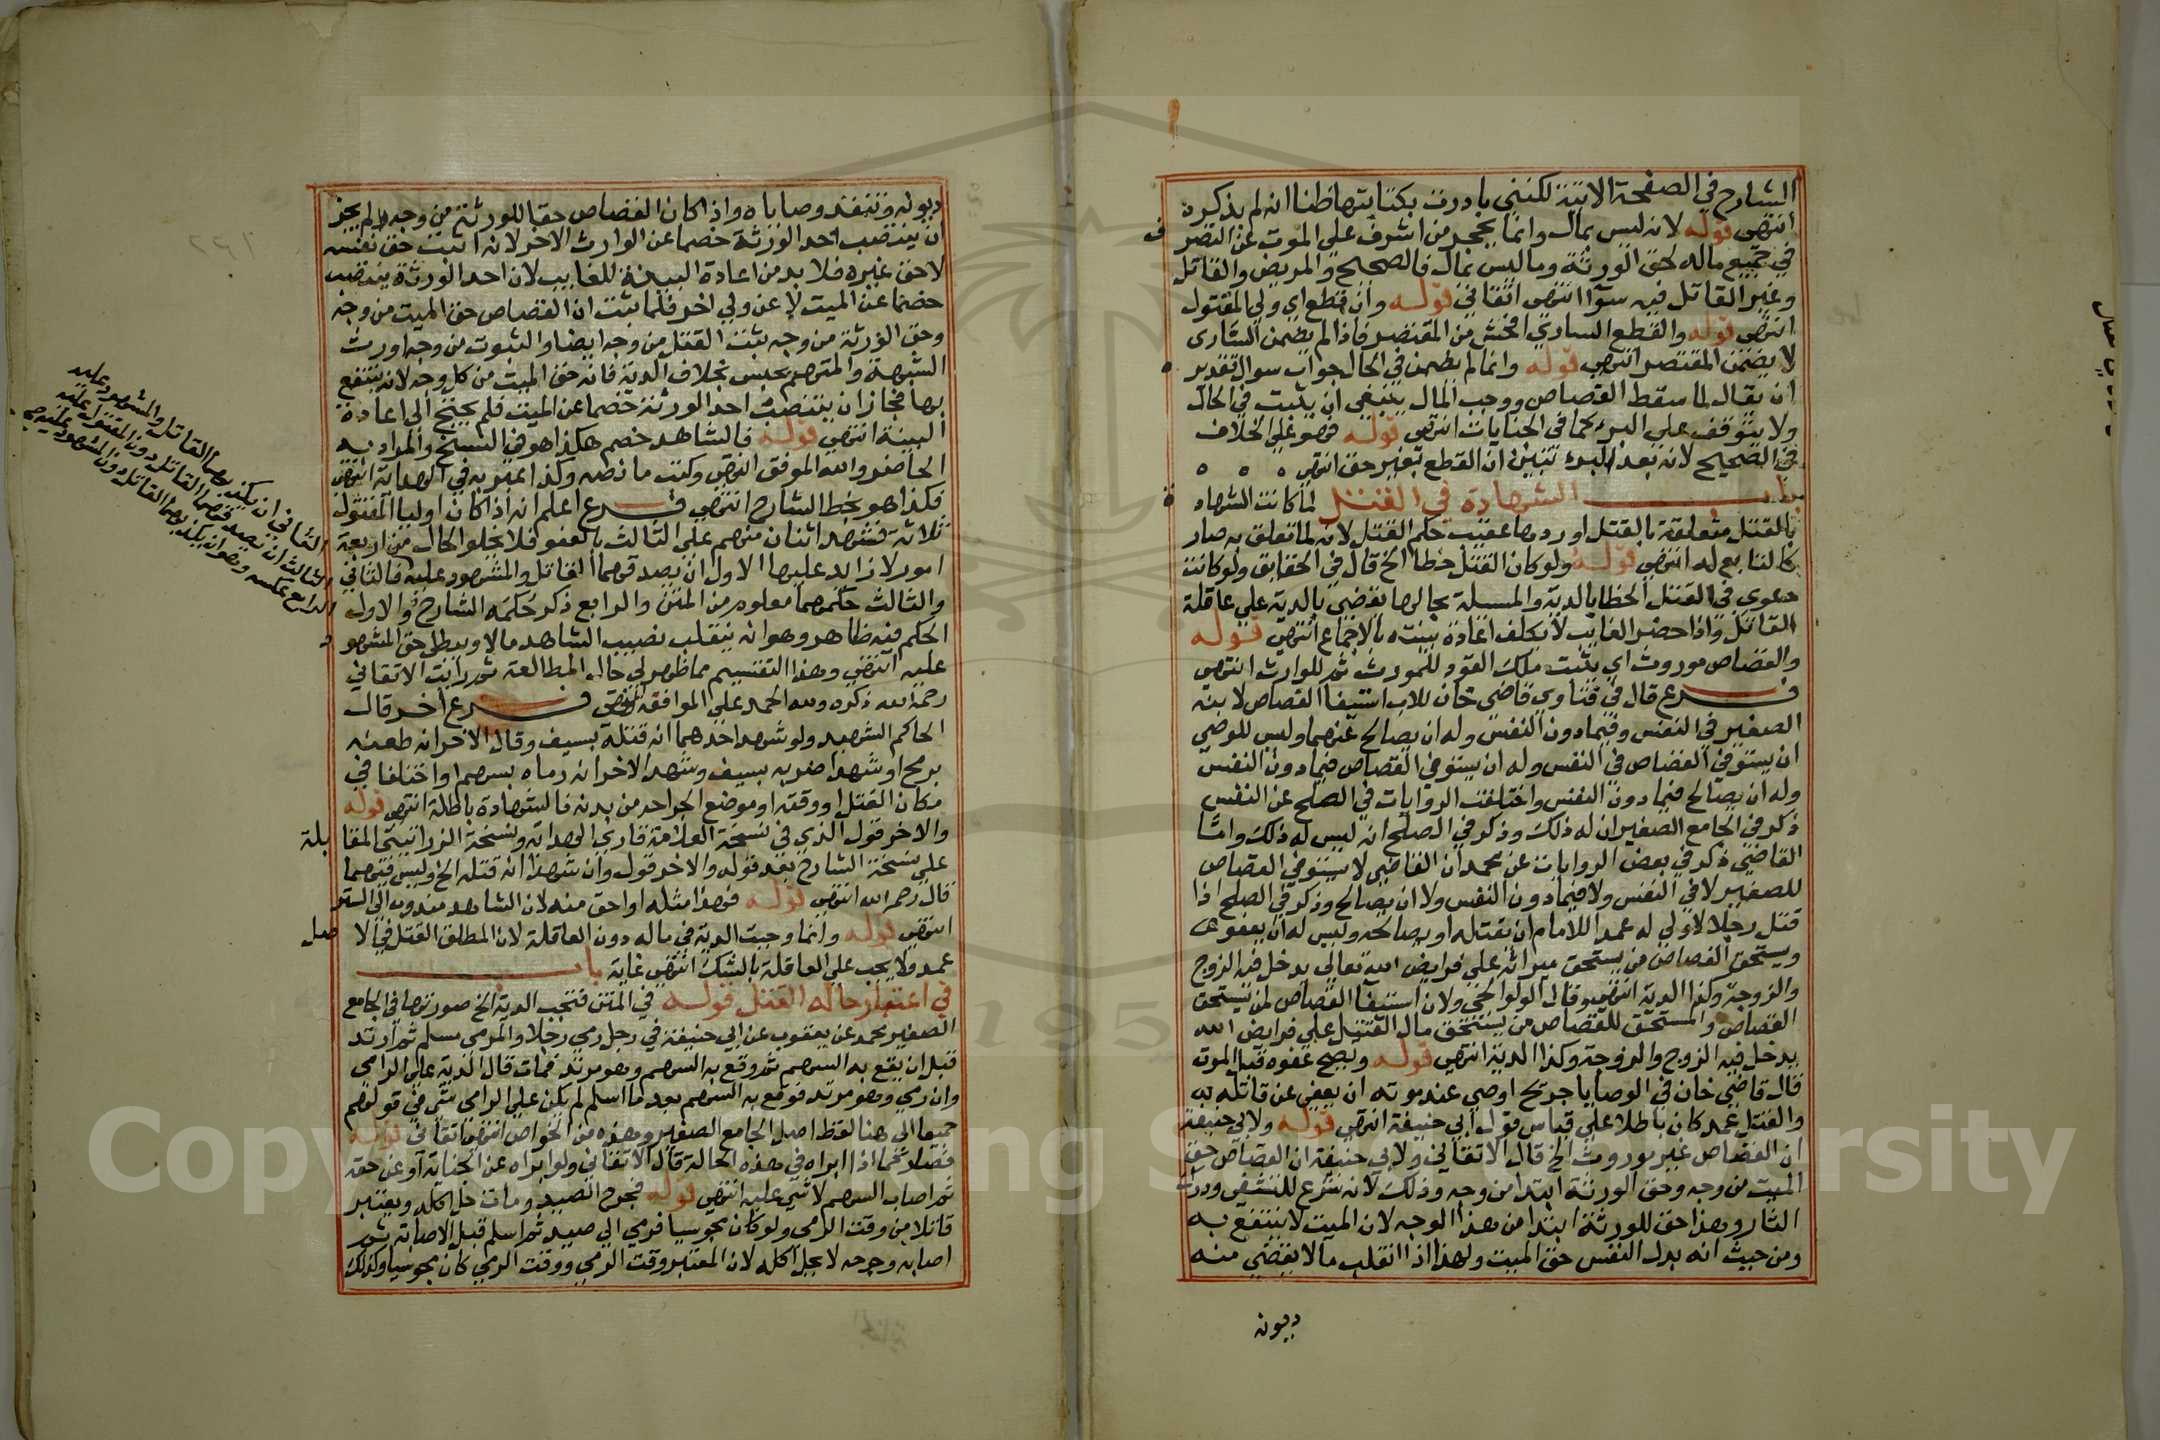 الشارح في الصفحة الاتية لكنني بادرت بكتابتها ظنا انه لم يذكره
انتهى قوله لانه ليس بمال وانما يحجر من اشرف على الموت عن التصرف
في جميع ماله لحق الورثة وما ليس بمال فالصحيح والمريض والقاتل
وغير القاتل فيه سوآ انتهى اتقاني قوله وان قطع اي ولي المقتول
انتهى قوله والقطع الساري افحش من المقتصر فاذا لم يضمن الساري
لا يضمن المقتصر انتهى قوله وانما لم يضمن في الحال جواب سوال تقديره
ان يقال لما سقط القصاص ووجب المال ينبغي ان يثبت في الحال
ولا يتوقف على البرء كما في الجنايات انتهى قوله فهو على الخلاف
في الصحيح لانه بعد البرء تبين ان القطع بغير حق انتهى
باب الشهادة في القتل لما كانت الشهادة
بالقتل متعلقة بالقتل اوردها عقيب حكم القتل لان لما تعلق به صار
كالتابع له انتهى قوله ولو كان القتل خطا الخ قال في الحقايق ولو كانت
دعوى في القتل الخطا بالدية والمسلة بحالها يقضي بالدية على عاقلة
القاتل واذا حضر الغايب لا يكلف اعادة بينته بالاجماع انتهى قوله
والقصاص موروث اي يثبت ملك القود للمورث ثم للوارث انتهى
فرع قال في فتاوي قاضي خان للاب استيفا القصاص لابنه
الصغير في النفس وفيما دون النفس وله ان يصالح عنهما وليس للوصي
ان يستوفي القصاص في النفس وله ان يستوفي القصاص فيما دون النفس
وله ان يصالح فيما دون النفس واختلفت الروايات في الصلح عن النفس
ذكر في الجامع الصغير ان له ذلك وذكر في الصلح انه ليس له ذلك واما
القاضي ذكر في بعض الروايات عن محمد ان القاضي لا يستوفي القصاص
للصغير لا في النفس ولا فيما دون النفس ولا ان يصالح وذكر في الصلح اذا
قتل رجلا لا ولي له عمدا للامام ان يقتله او يصالحه وليس له ان يعفو
ويستحق القصاص من يستحق ميراثه على فرايض الله تعالى يدخل فيه الزوج
والزوجة وكذا الدية انتهى وقال الولوالجي ولان استيفا القصاص لمن يستحق
القصاص والمستحق للقصاص من يستحق مال القتيل على فرايض الله
يدخل فيه الزوج والزوجة وكذا الدية انتهى قوله ويصح عفوه قبل الموت
قال قاضي خان في الوصايا جريح اوصي عند موته ان يعفى عن قاتله
والقتل عمد كان باطلا على قياس قول ابي حنيفة انتهى قوله ولابي حنيفة
ان القصاص غير موروث الخ قال الاتقاني ولابي حنيفة ان القصاص حق
الميت من وجه وحق الورثة ابتدا من وجه وذلك لانه شرع للتشفي ودرك
الثار وهذا حق للورثة ابتدا من هذا الوجه لان الميت لا ينتفع به
ومن حيث انه بدل النفس حق الميت ولهذا اذا انقلب مالا يقضى منه
ديونه
ديونه وتنفذ وصاياه واذا كان القصاص حقا للورثة من وجه لم يجز
ان ينتصب احد الورثة خصما عن الوارث الاخر لانه اثبت حق نفسه
لا حق غيره فلا بد من اعادة البينة للغايب لان احد الورثة ينتصب
خصما عن الميت لا عن ولي اخر فلما ثبت ان القصاص حق الميت من وجه
وحق الورثة من وجه يثبت القتل من وجه ايضا والثبوت من وجه اورث
الشبهة والمتهم يحبس بخلاف الدية فانه حق الميت من كل وجه لانه ينتفع
بها فجاز ان ينتصب احد الورثة خصما عن الميت فلم يحتج الى اعادة
البينة انتهى قوله فالشاهد خصم هكذا هو في النسخ والمراد به
الحاضر والله الموفق انتهى وكتب ما نصه وكذا عبر به في الهداية انتهى
فكذا هو بخط الشارح انتهى فرع اعلم انه اذا كان اوليا المقتول
ثلاثة فشهد اثنان منهم على الثالث بالعفو فلا يخلو الحال من اربعة
امور لا زايد عليها الاول ان يصدقهما القاتل والمشهود عليه فالثاني
والثالث حكمهما معلوم من المتن والرابع ذكر حكمه الشارح والاول
الحكم فيه ظاهر وهو انه ينقلب نصيب الشاهد مالا ويبطل حق المشهود
عليه انتهى وهذا التقسيم مما ظهر لي حال المطالعة ثم رايت الاتقاني
رحمه الله ذكره ولله الحمد على الموافقة انتهى فرع اخر قال
الحاكم الشهيد ولو شهد احدهما انه قتله بسيف وقال الاخر انه طعنه
برمح او شهد انه ضربه بسيف وشهد الاخر انه رماه بسهم او اختلفا في
مكان القتل او وقته او موضع الجراحة من بدنه فالشهادة باطلة انتهى قوله
والاخر قول الذي في نسخة العلامة قاري الهداية ونسخة الزراتيتي المقابلة
على نسخة الشارح بعد قوله والاخر قوله وان شهدا انه قتله الخ وليس فيهما
قال رحمه الله انتهى قوله فهذا مثله او احق منه لان الشاهد مندوب الى الستر
انتهى قوله وانما وجبت الدية في ماله دون العاقلة لان المطلق القتل في الاصل
عمد ولا يجب على العاقلة بالشك انتهى غاية باب
في اعتبار حالة القتل قوله في المتن فتجب الدية الخ صورتها في الجامع
الصغير محمد عن يعقوب عن ابي حنيفة في رجل رمى رجلا والمرمي مسلم ثم ارتد
قبل ان يقع به السهم ثم وقع به السهم وهو مرتد فمات قال الدية على الرامي
وان رمى وهو مرتد فوقع به السهم بعد ما اسلم لم يكن على الرامي شي في قولهم
جميعا الى هنا لفظ اصل الجامع الصغير وهذه من الخواص انتهى اتقاني قوله
فصار كما اذا ابراه في هذه الحالة قال الاتقاني ولو ابراه عن الجناية او عن حقه
ثم اصاب السهم لا شي عليه انتهى قوله فجرح الصيد ومات حل اكله ويعتبر
قاتلا من وقت الرمي ولو كان مجوسيا فرمى الى صيد ثم اسلم قبل الاصابة ثم
اصابه وجرحه لا يحل اكله لان المعتبر وقت الرمي ووقت الرمي كان مجوسيا وكذلك
الثاني ان يكذبهما القاتل والمشهود عليه
الثالث ان يصدقهما القاتل دون المشهود عليه
الرابع عكسه وهو ان يكذبهما القاتل دون المشهود عليه